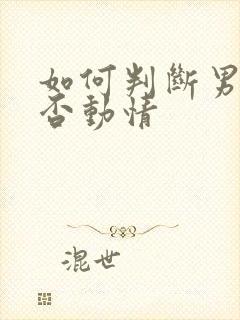 如何判斷男
否動情
混世